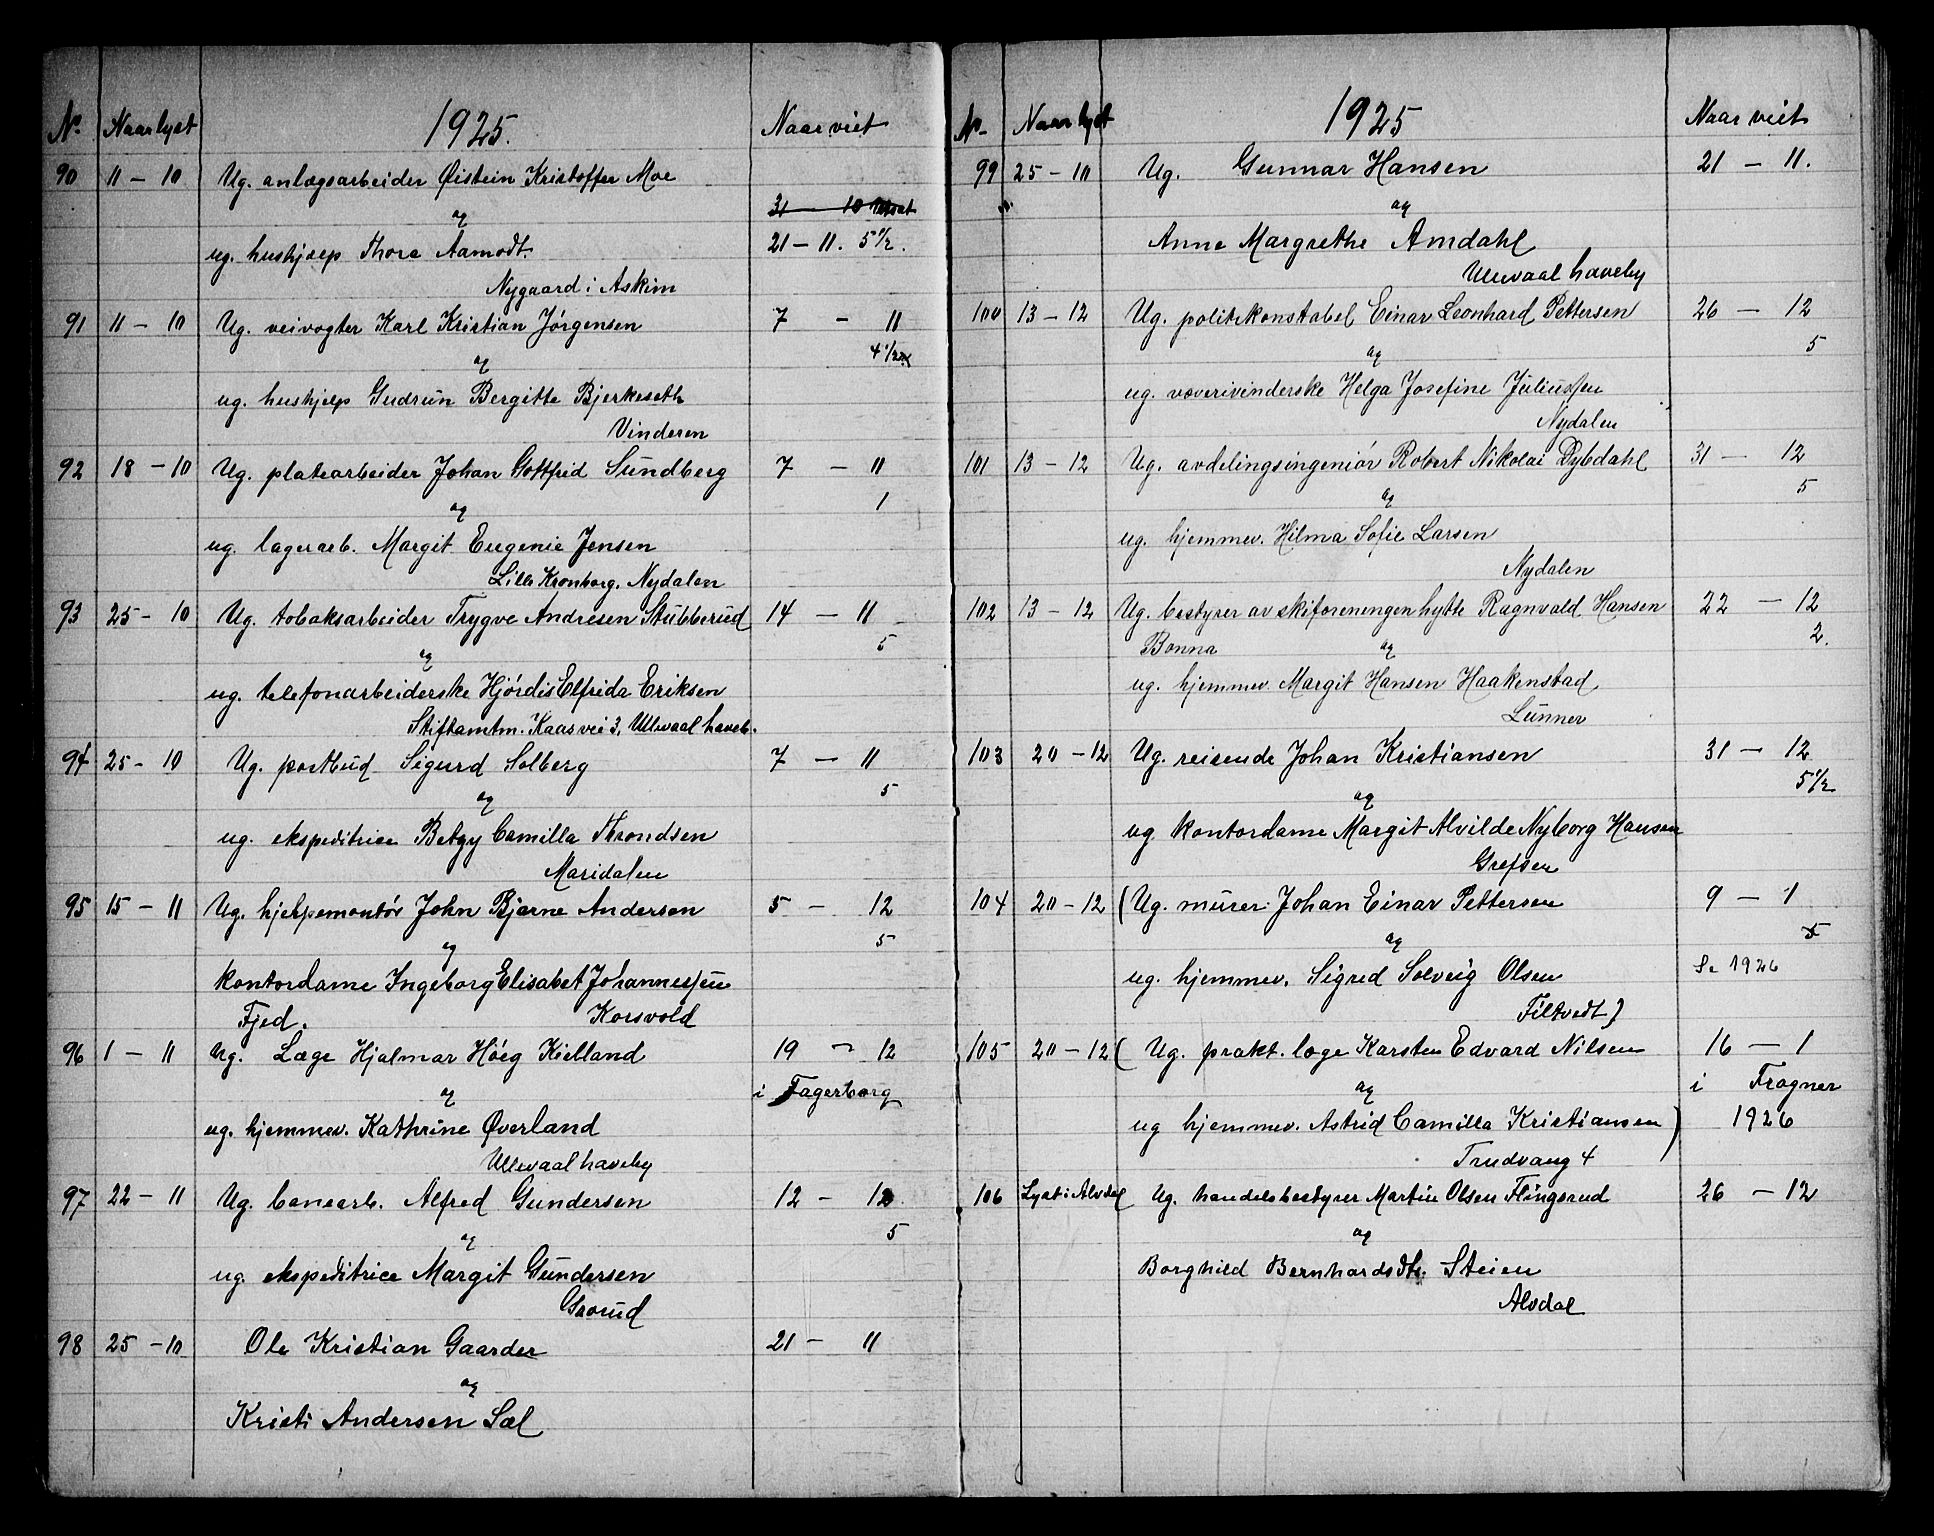 No. Naar lyst 1925. Naar viet
90 11 - 10 Ug. anlægsarbeider Øistein Kristoffer Moe
31 - 10 utsat
og
ug. hushjælp Thora Aamodt. 21 - 11. 5 1/2.
Nygaard i Askim
91 11 - 10 Ug. veivogter Karl Kristian Jørgensen 7 - 11
og 4 1/2
ug. hushjelp Gudrun Bergitte Bjerkeseth
Vinderen
92 18 - 10 Ug. platearbeider Johan Gottfred Sundberg 7 - 11
og 1
ug. lagerarb. Margit Eugenie Jensen
Lille Kronborg, Nydalen
93 25 - 10 Ug. tobaksarbeider Trygve Andresen Stubberud 14 - 11
og 5
ug. telefonarbeiderske Hjørdis Elfrida Eriksen
Stiftamtm. Kaas vei 3, Ullevaal haveb.
94 25 - 10 Ug. postbud Sigurd Solberg 7 - 11
og 5
ug. ekspeditrice Betzy Camilla Throndsen
Maridalen
95 15 - 11 Ug. hjelpemontør John Bjarne Andersen 5 - 12
og 5
Kontordame Ingeborg Elisabet Johannessen
Fjed. Korsvold
96 1 - 11 Ug. Læge Hjalmar Høeg Kielland 19 - 12
og i Fagerborg
ug. hjemmev. Kathrine Øverland
Ullevaal haveby
97 22 - 11 Ug. banearb. Alfred Gundersen 12 - 12
og 5
ug. ekspeditrice Margit Gundersen
Grorud
98 25 - 10 Ole Kristian Gaarder 21 - 11
og
Kristi Andersen Sæl
No. Naar lyst 1925 Naar viet
99 25 - 10 Ug. Gunnar Hansen 21 - 11.
og
Anne Margrethe Amdahl
Ullevaal haveby
100 13 - 12 Ug. politikonstabel Einar Leonhard Pettersen 26 - 12
og 5
ug. væverivinderske Helga Josefine Juliussen
Nydalen
101 13 - 12 Ug. avdelingsingeniør Robert Nikolai Dybdahl 31 - 12
og 5
ug. hjemmev. Hilma Sofie Larsen
Nydalen
102 13 - 12 Ug. bestyrer av skiforeningen hytte Ragnvald Hansen 22 - 12
Bonna og 2.
ug. hjemmev. Margit Hansen Haakenstad
Lunner
103 20 - 12 Ug. reisende Johan Kristiansen 31 - 12
og 5 1/2
ug. kontordame Margit Alvilde Nyborg Hansen
Grefsen
104 20 - 12 (Ug. murer Johan Einar Pettersen 9 - 1
og 5
ug. hjemmev. Sigred Solveig Olsen Se 1926
Filtvedt)
105 20 - 12 (Ug. prakt. læge Karsten Edvard Nilsen 16 - 1
og i Frogner
ug hjemmev. Astrid Camilla Kristiansen) 1926
Trudvang 4
106 Lyst i Alvdal Ug. handelsbestyrer Martin Olsen Flingsrud 26 - 12
og
Borghild Bernhardsdtr. Steien
Alvdal